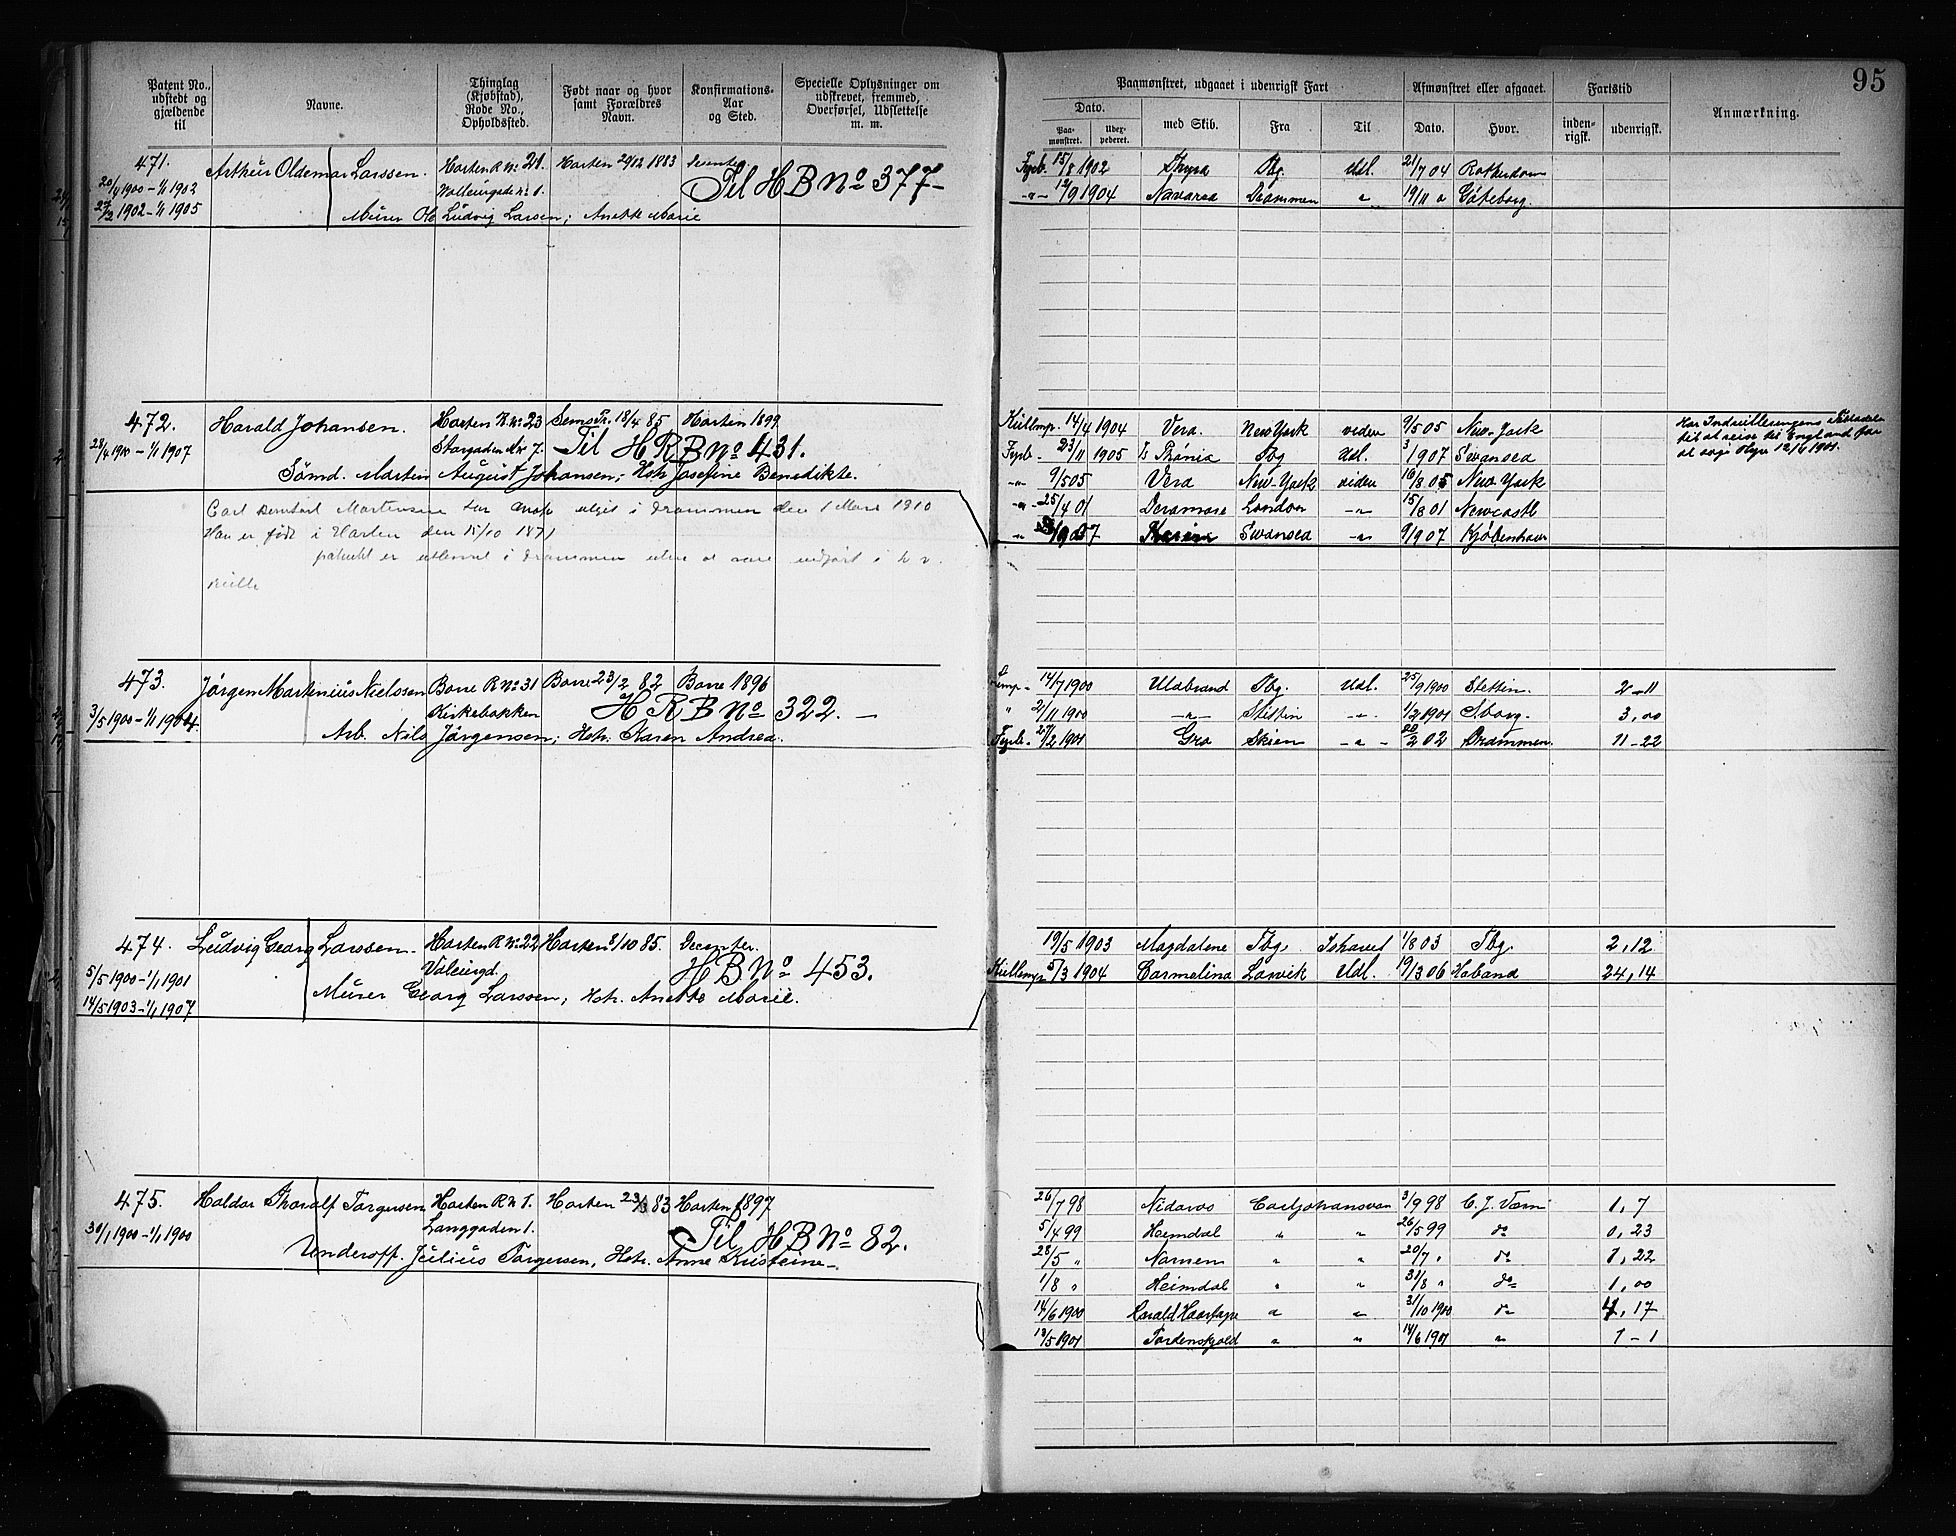 Patent No., udstedt og gjældende til
Navne.
Thinglag (Kjøbstad), Rode No., Opholdssted.
Født naar og hvor samt Forældres Navn.
Konfirmations-Aar og Sted.
Specielle Oplysninger om udskrevet, fremmed, Overførsel, Udslettelse m. m.
Paamønstret, udgaaet i udenrigsk Fart
Dato.
Paamønstret.
med Skib.
Fra
Til
Afmønstret eller afgaaet.
Dato.
Hvor.
Fartstid
indenrigsk.
udenrigsk.
Anmærkning.
95
471. Arthur Oldemar Larssen. Horten R No 21. Horten 29/12 1883
Til H B No 377
20/4 1900 - 1/1 1903
27/2 1902 - 1/1 1905
Murer Ole Ludvig Larsen; Anette Marie
Fyrb. 15/8 1902 Thyra Tbg. Udl. 21/7 04 Rotterdam
-"- 12/9 1904 Navarra Drammen " 19/11 " Göteborg.
472. Harald Johansen. Horten R. No 23 Sem 18/4 85 Horten 1899
28/4 1900 - 1/1 1907 Storgaden No 7. Til H R B No 431.
Sømd. Martin August Johansen; Hstr. Josefine Benedikte.
Carl Bernhart Martinsen har Møn. utgit i Drammen den 1 Mars 1910
Han er født i Horten den 15/10 1871
patentet er utlevert i Drammen uten at være indført i h. v.
rulle
Kullemp. 14/4 1904 Vera. New York viden 9/5 05 New York
Fyrb. 23/11 1905 Tbg Udl. 3/1 907 Swansea
-"- 9/5 05 Vera New-York viden 10/8 05 New York
-"- 25/4 01 London -"- 15/8 01 Newcastle
Swansea -"- 9/1 907 Kjøbenhavn
Har Indrulleringens Tilladelse
til at reise til England for
at søge Hyre 12/4 1901.
473. Jørgen Martinius Nielssen Borre R No 31 Borre 23/2 82 Borre 1896
Kirkebakken H R B No 322. -
3/5 1900 - 1/1 1904.
Arb. Nils Jørgensen; Hstr. Karen Andrea.
Lemp. 14/7 1900 Uldbrand Tbg. Udl. 25/9 1900 Stettin. 2 - 11
" 2/11 1900 -"- Stettin -"- 1/2 1901 Sborg. 3,00
Fyrb. 27/2 1901 Gro Skien -"- 02 Drammen. 11 - 22
474. Ludvig Georg Larssen. Horten R No 22 Horten 9/10 85. December.
5/5 1900 - 1/1 1901 H B No 453.
14/5 1903 - 1/1 1907
Murer Georg Larssen; Hstr. Anette Marie.
19/5 1903 Magdalene Tbg. Ishavet 1/8 03 Tbg. 2,12
Kullemp. 5/3 1904 Carmelina Larvik Udl. 19/3 06 Habana 24,14
475. Haldor Thoralf Torgersen Horten R No 1. Horten 83 Horten 1897
Langgaden 1. Til H B No 82.
30/1 1900 - 1/1 1900
Underoff. Julius Torgersen, Hstr. Anne Kristine -
26/7 98 Nidaros Carljohansværn 3/9 98 C. J. Værn 1, 7
5/4 99 Heimdal " " 26/5 99 do 0, 23
28/5 " Nornen " " 20/7 " do 1, 22
1/8 " Heimdal " " 31/8 " do 1,00
14/6 1900 Harald Haarfagre " " 31/10 1900 do 4, 17
13/5 1901 Tordenskjold " " 14/6 1901 " 1 - 1